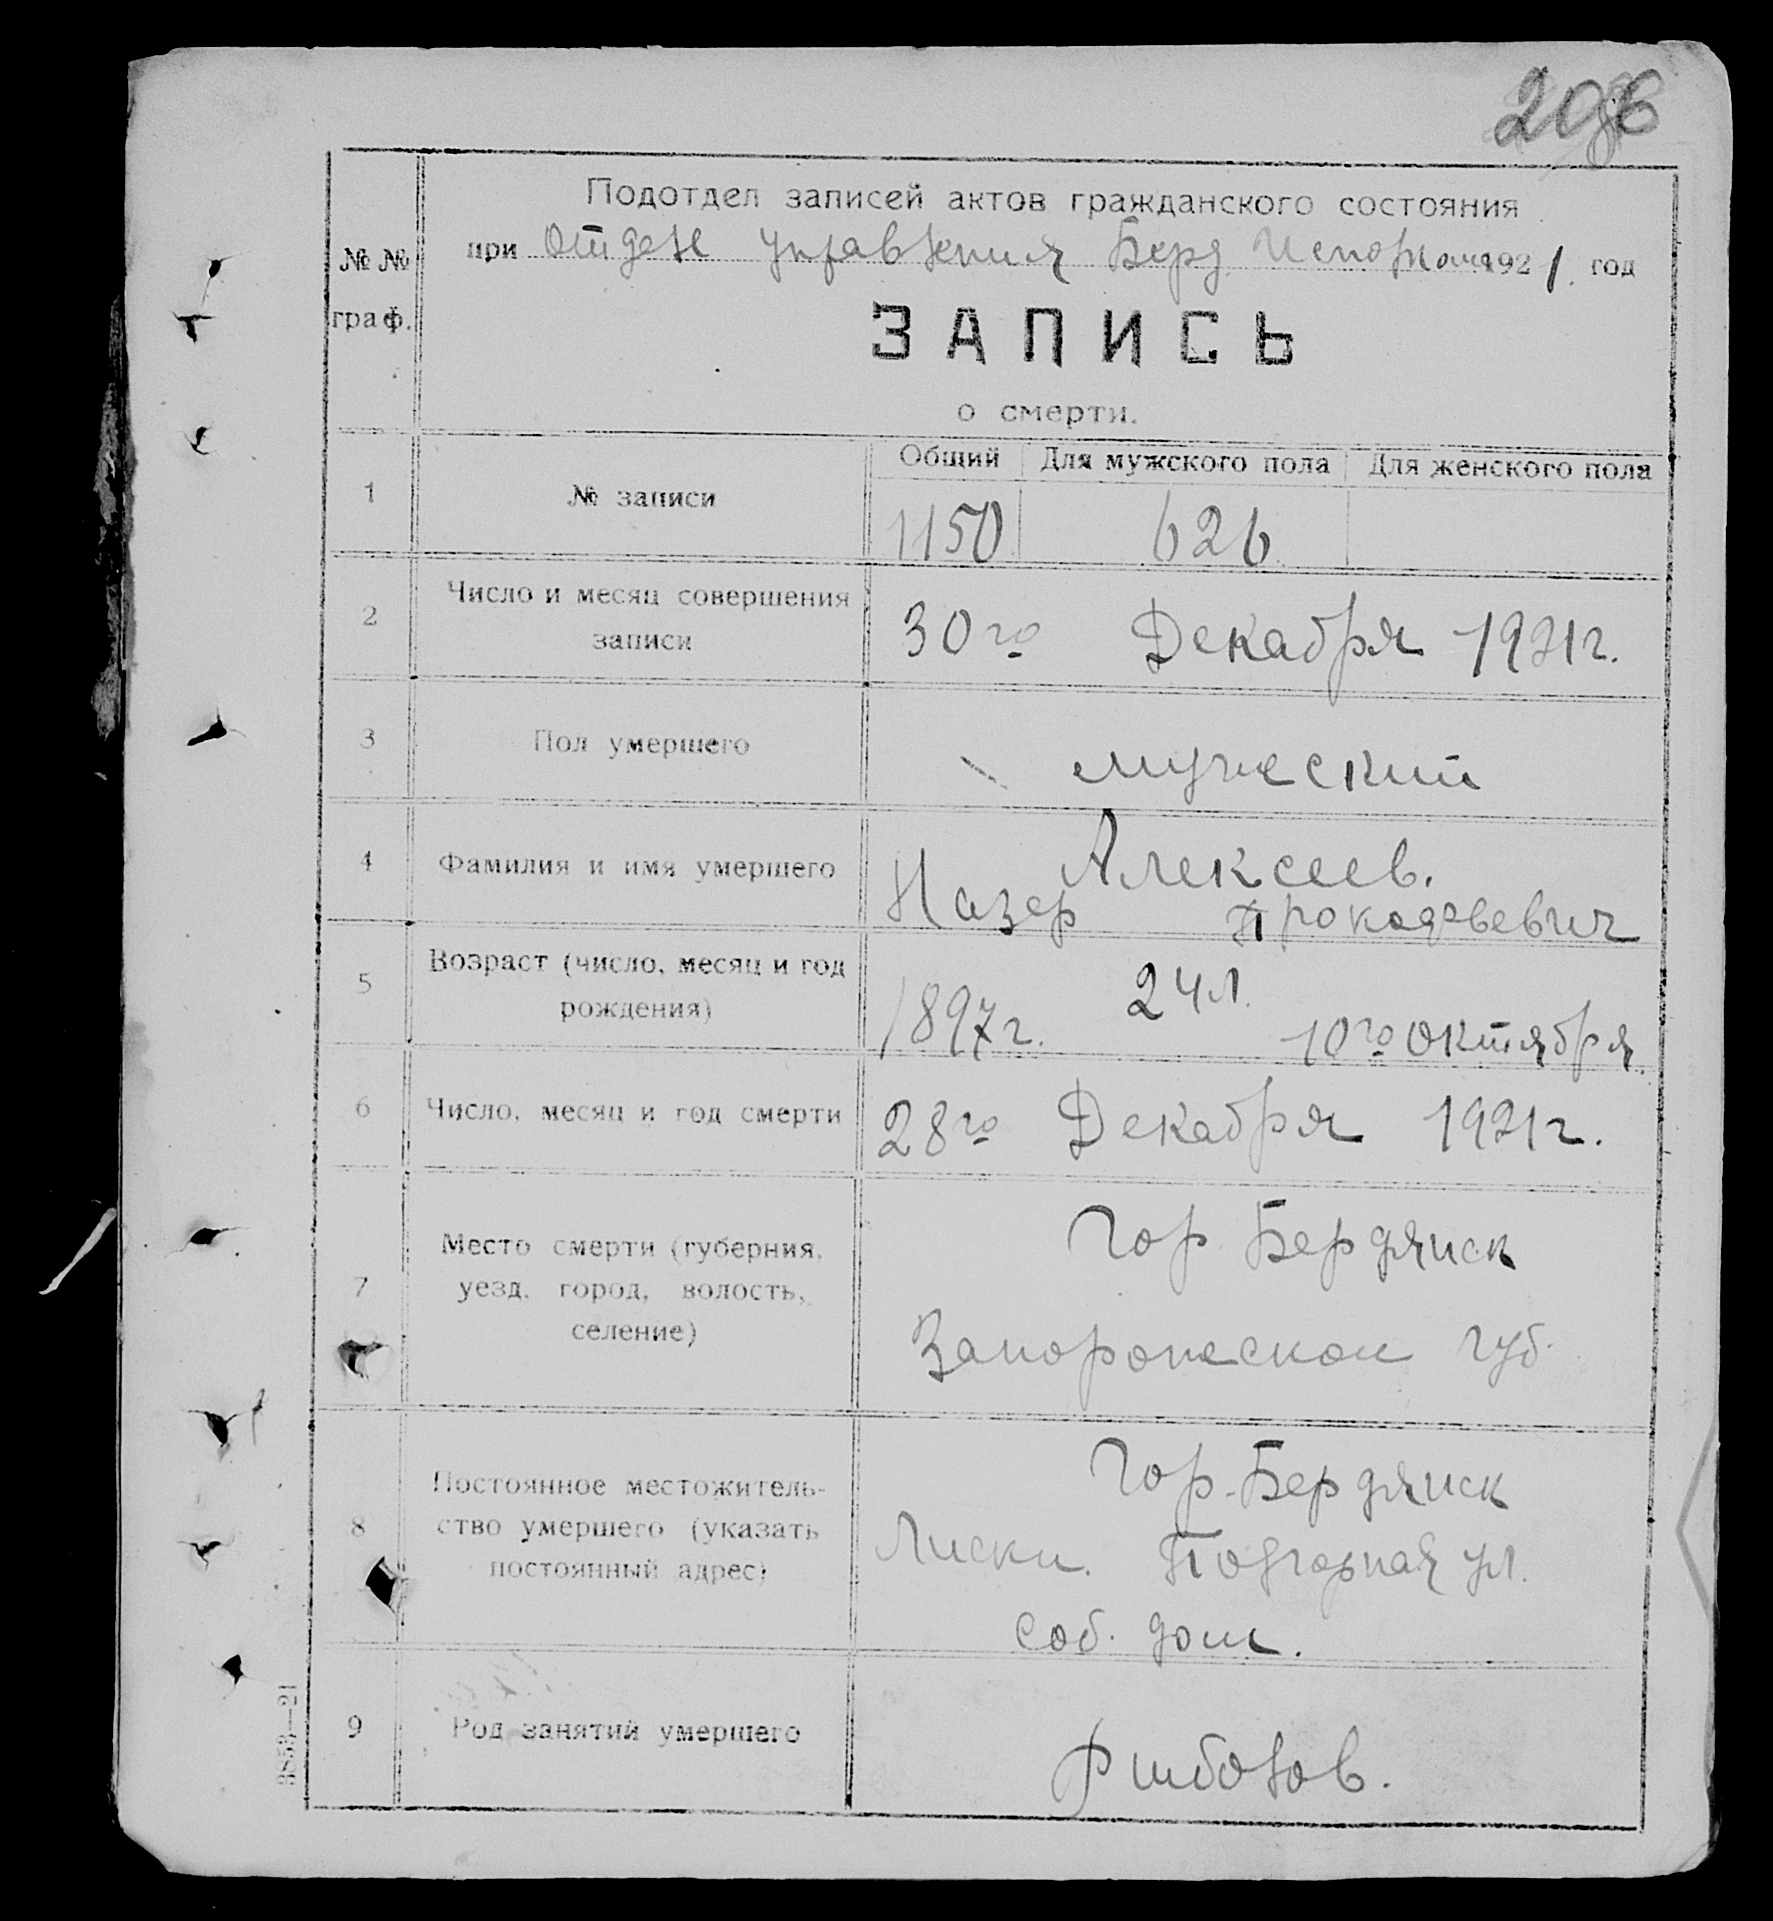 Подотдел записей актов гражданского состояния
при Отделе управления Берд. Исполкома 1921. год
№№
граф.
ЗАПИСЬ
о смерти.
Общий Для мужского пола Для женского пола
1 № записи 1150 626
2 Число и месяц совершения
записи
30го Декабря 1921г.
3 Пол умершего мужеский
4 Фамилия и имя умершего
Алексеев.
Назар
5 Возраст (число, месяц и год
рождения)
24 л.
1897г. 10го октября
6 Число, месяц и год смерти 28го Декабря 1921г.
7 Место смерти (губерния,
уезд, город, волость,
селение)
Гор Бердянск
Запорожской губ.
8 Постоянное местожитель-
ство умершего (указать
постоянный адрес)
Гор. Бердянск
Лиски. Подгорная ул.
соб. дом.
9 Род занятий умершего Рыболов.
3853—21